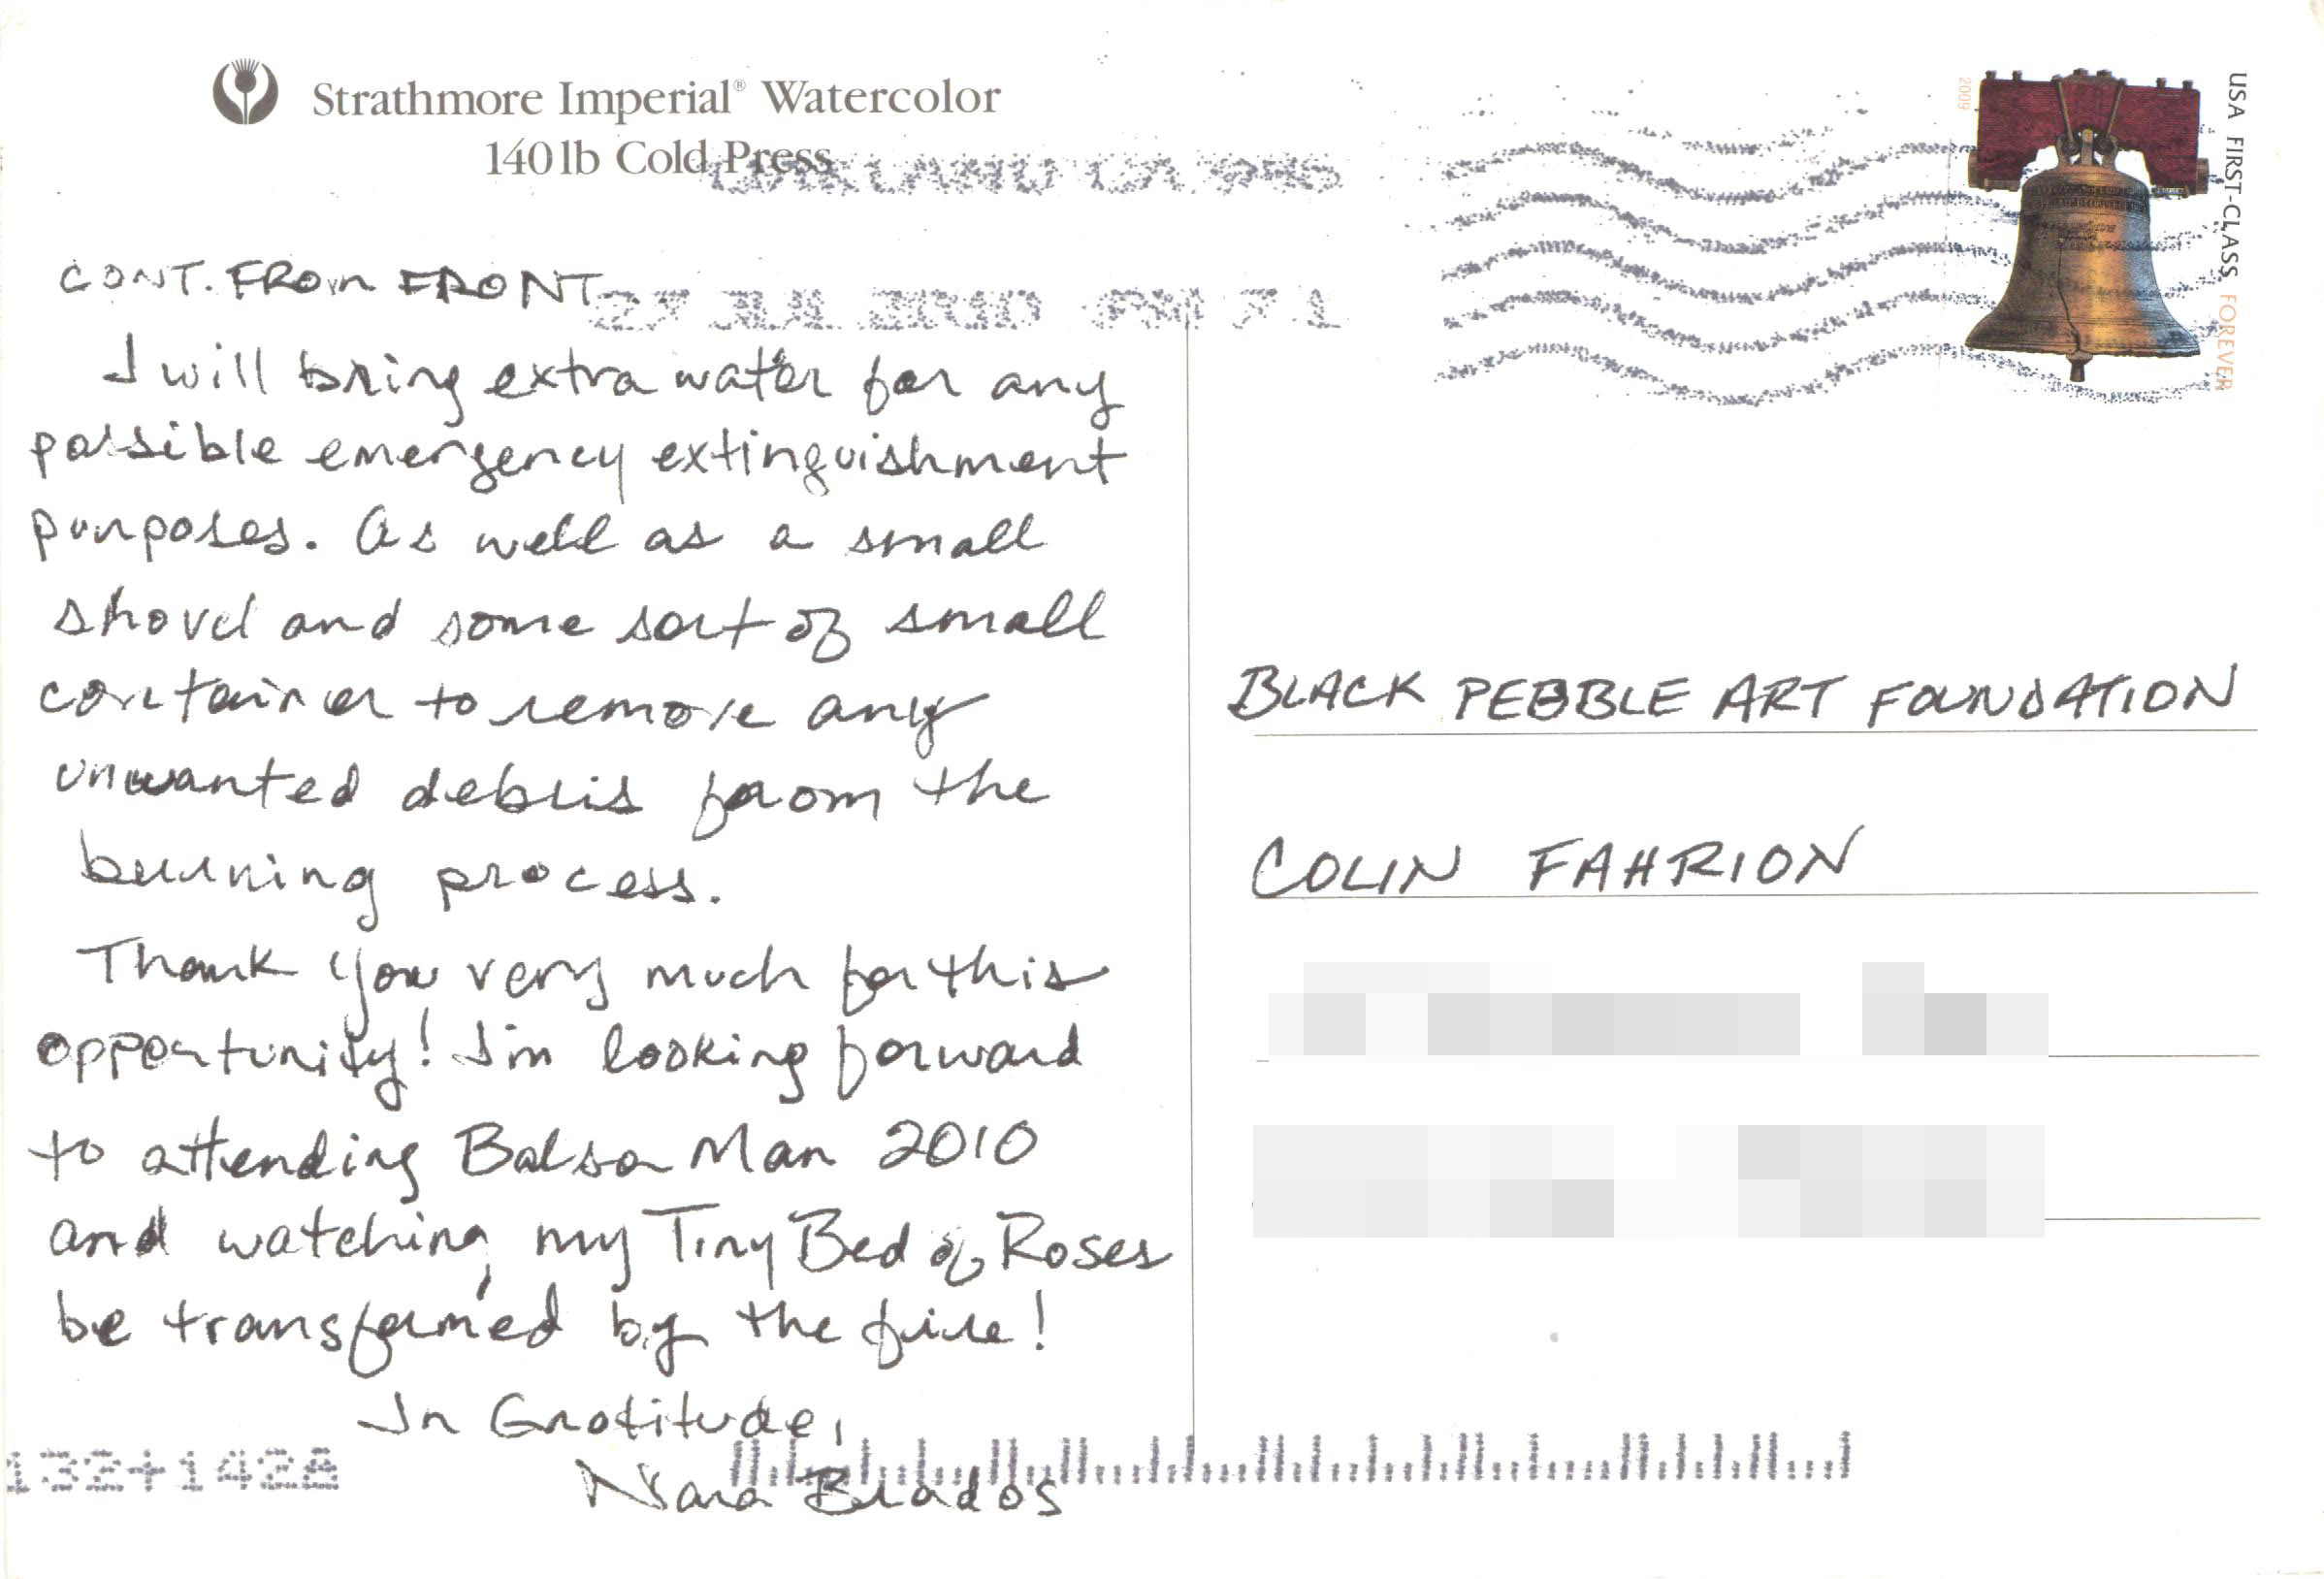 Strathmore Imperial® Watercolor
140 lb Cold Press
OAKLAND CA 945
27 JUL 2010 PM 7 L
USA FIRST-CLASS FOREVER
2009
CONT. FROM FRONT
I will bring extra water for any
possible emergency extinguishment
purposes. As well as a small
shovel and some sort of small
container to remove any
unwanted debris from the
burning process.
Thank you very much for this
opportunity! I'm looking forward
to attending Balsa Man 2010
and watching my Tiny Bed of Roses
be transformed by the fire!
In Gratitude,
Nara Brados
132+142A
BLACK PEBBLE ART FOUNDATION
COLIN FAHRION